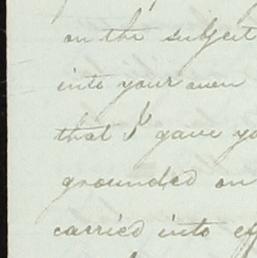 on the subject
into your own
that I gave yo
grounded on
carried into ef